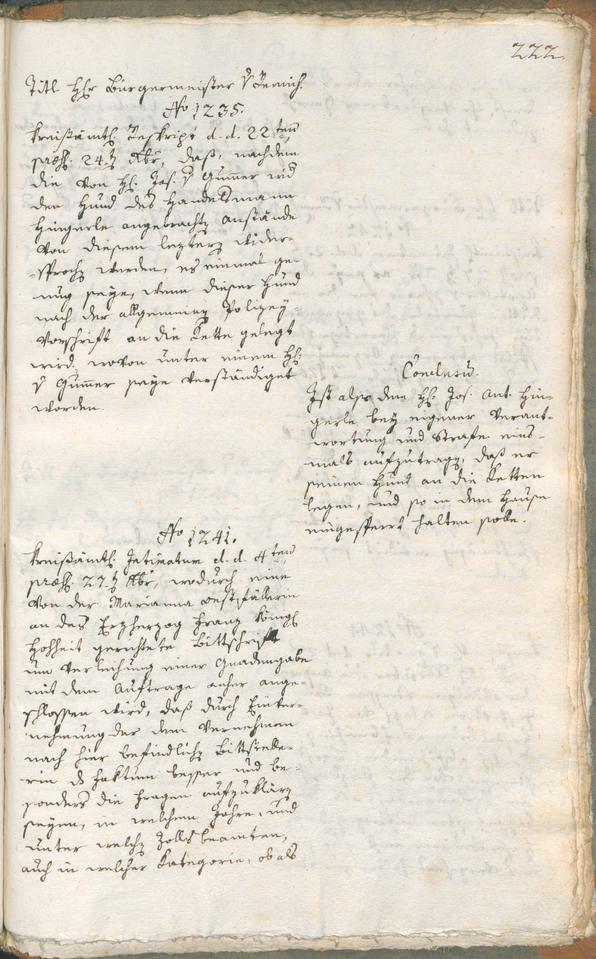 222
Titl Hr Burgermeister v Remich.
No 1235.
Kreisämtl. Reskript d. d. 22ten
præs. 24. 9br, daß, nachdem
die von H. Jos. v Gumer wid
den Hund des Handelsmann
Hingerle angebrachte Anstände
von diesem leztern wider-
sprochen werden, es einmal ge-
nug seye, wenn dieser Hund
nach der allgemeinen Polizey
Vorschrift an die Kette gelegt
wird. wovon unter einem H.
v Gumer seye verständiget
worden.
Conclusum.
Ist also dem H. Jos. Ant. Hin-
gerle bey eigener Verant-
wortung und Strafe eins-
mals aufzutragen, daß er
seinen Hund an die Ketten
legen, und so in dem Hause
eingesperrt halten solle.
No 1241.
Kreisämtl. Intimatum d. d. 4ten
præs. 27. 9br, wodurch eine
von der Marianna
an des Erzherzog Franz Königl
Hohheit gerichtete Bittschrift
um Verleihung einer Gnadengabe
mit dem Auftrage anher ange-
schlossen wird, daß durch Einver-
nehmung der dem Vernehmen
nach hier befindlichen Bittstelle-
rin das Faktum besser und be-
sonders die Fragen aufzuklären
seyen, in welchem Jahre, und
unter welchen Zollsbeamten,
auch in welcher Kategorie, ob als